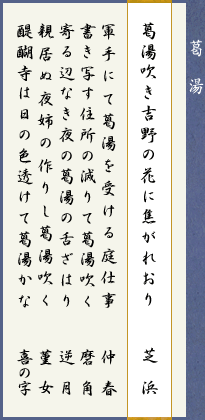 葛湯
葛湯吹き吉野の花に焦がれおり 芝浜
軍手にて葛湯を受ける庭仕事 仲春
書き写す住所の減りて葛湯吹く 磨角
寄る辺なき夜の葛湯の舌ざはり 逆月
親居ぬ夜姉の作りし葛湯吹く 菫女
醍醐寺は日の色透けて葛湯かな 喜の字